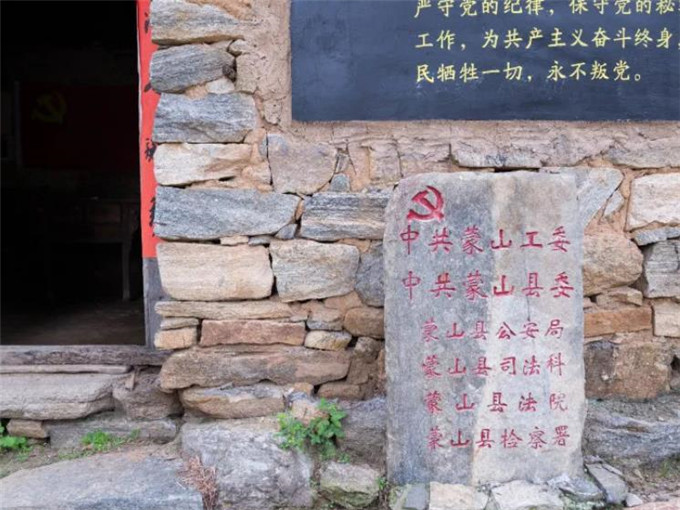 严守党的纪律，保守党的秘
工作，为共产主义奋斗终身，
民牺牲一切，永不叛党。
中共蒙山工委
中共蒙山县委
蒙山县公安局
蒙山县司法科
蒙山县法院
蒙山县检察署